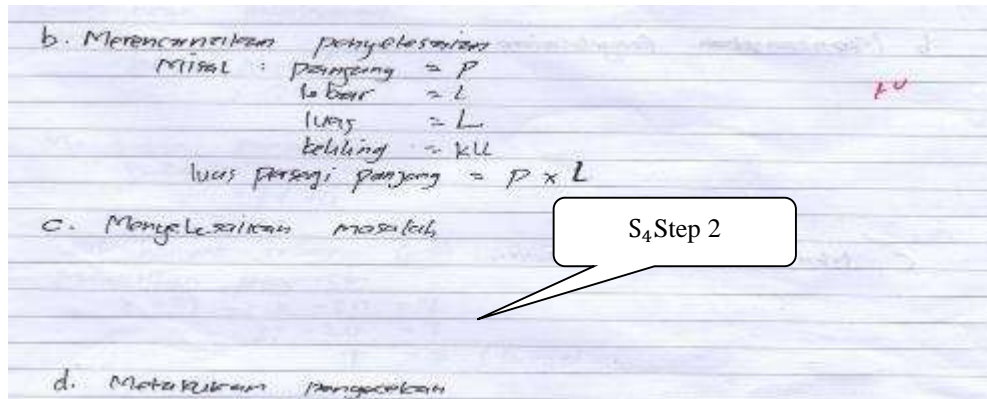 b. Merencanakan penyelesaian
Misal : panjang = P
lebar = L
luas = L
keliling = kll
luas persegi panjang = P x L
c. Menyelesaikan masalah
S₄Step 2
d. Melakukan pengecekan